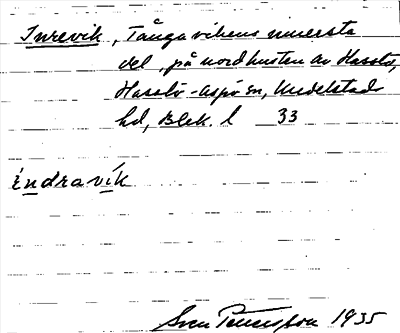 Inrevik, Tångavikens innersta
del, på nordkusten av Hasslö,
Hasslö-Aspö sn, Medelstads
hd, Blek. l 33
índravík
Sven 1935